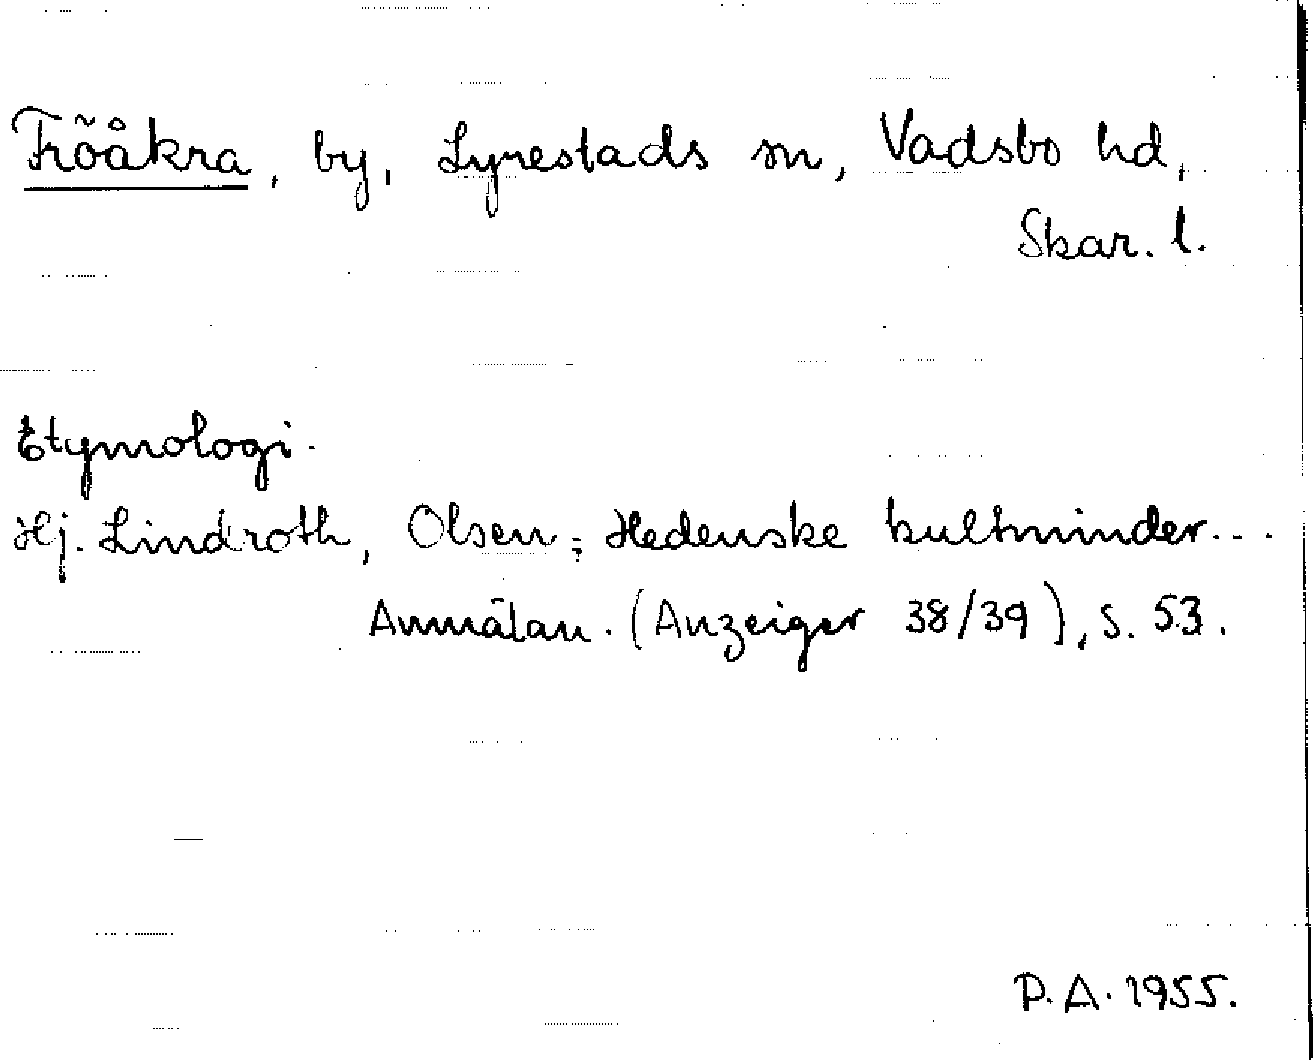 Fröåkra, by, Lyrestads sn, Vadsbo hd,
Skar. l.
Etymologi.
Hj. Lindroth, Olsen, Hedenske kultminder...
Anmälan. (Anzeiger 38/39), s. 53.
P.A. 1955.